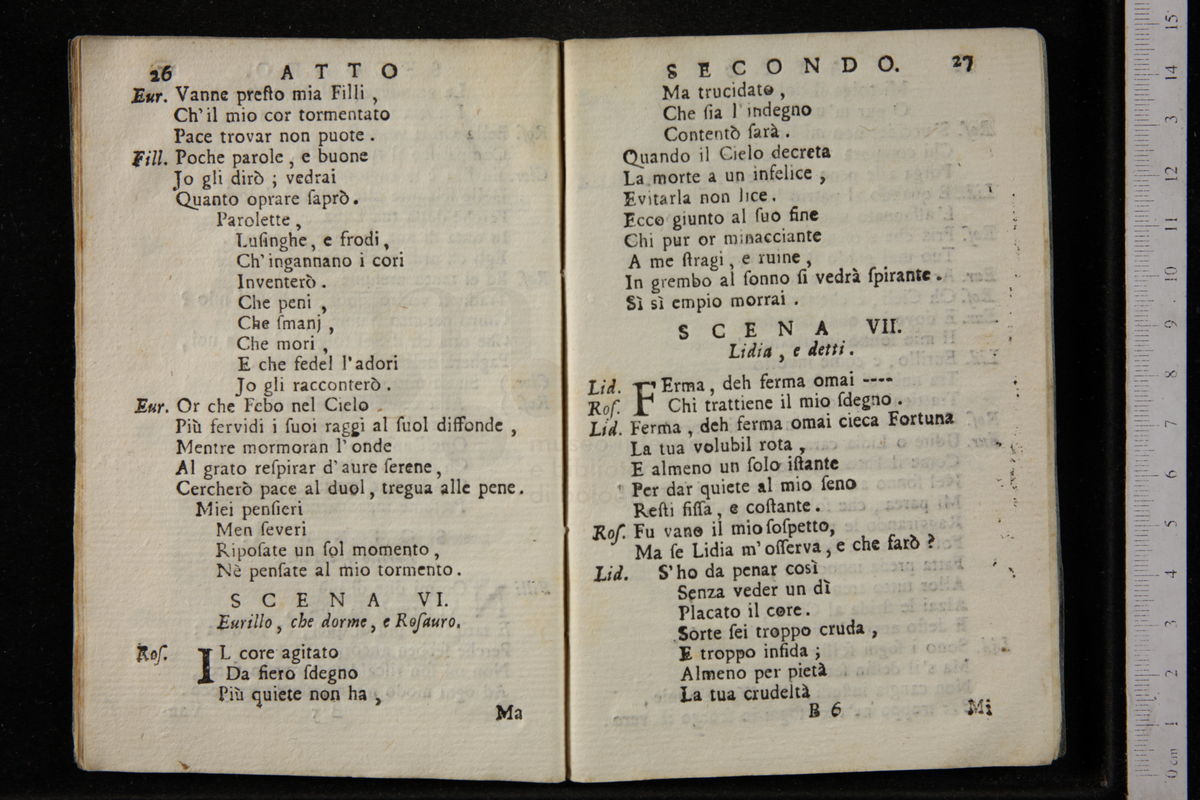 26 ATTO
Eur. Vanne preſto mia Filli ,
Ch'il mio cor tormentato
Pace trovar non puote .
Fill. Poche parole , e buone
Jo gli dirò ; vedrai
Quanto oprare ſaprò .
Parolette ,
Luſinghe , e frodi ,
Ch'ingannano i cori
Inventerò .
Che peni ,
Che ſmanj ,
Che mori ,
E che fedel l'adori
Jo gli racconterò .
Eur. Or che Febo nel Cielo
Più fervidi i ſuoi raggi al ſuol diffonde ,
Mentre mormoran l'onde
Al grato reſpirar d'aure ſerene ,
Cercherò pace al duol , tregua alle pene .
Miei penſieri
Men ſeveri
Ripoſate un ſol momento ,
Nè penſate al mio tormento .
SCENA VI.
Eurillo , che dorme , e Roſauro .
Roſ. IL core agitato
Da fiero ſdegno
Più quiete non ha ,
Ma
SECONDO. 27
Ma trucidato ,
Che ſia l'indegno
Contentò ſarà .
Quando il Cielo decreta
La morte a un infelice ,
Evitarla non lice .
Ecco giunto al ſuo fine
Chi pur or minacciante
A me ſtragi , e ruine ,
In grembo al ſonno ſi vedrà ſpirante .
Sì sì empio morrai .
SCENA VII.
Lidia , e detti .
Lid. FErma , deh ferma omai ----
Roſ. Chi trattiene il mio ſdegno .
Lid. Ferma , deh ferma omai cieca Fortuna
La tua volubil rota ,
E almeno un ſolo iſtante
Per dar quiete al mio ſeno
Reſti fiſſa , e coſtante .
Roſ. Fu vano il mio ſoſpetto,
Ma ſe Lidia m'oſſerva , e che farò ?
Lid. S'ho da penar così
Senza veder un dì
Placato il core .
Sorte ſei troppo cruda ,
E troppo infida ;
Almeno per pietà
La tua crudeltà
B 6 Mi
15
14
3
12
11
10
9
8
7
6
5
4
3
2
1
0 cm